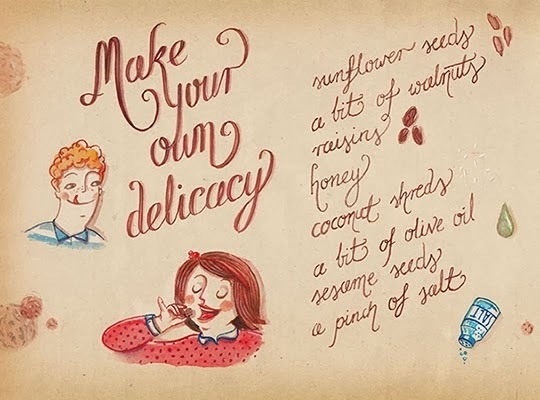 Make
your
own
delicacy
sunflower seeds
a bit of walnuts
raisins
honey
coconut shreds
a bit of olive oil
sesame seeds
a pinch of salt
SALT